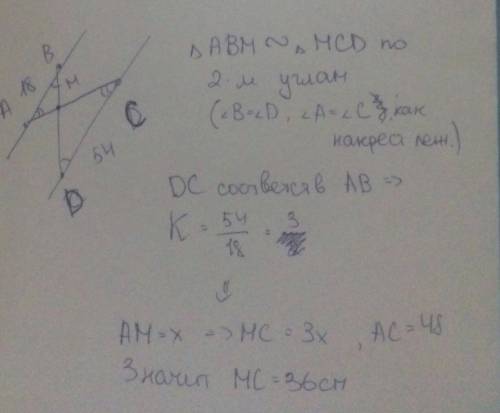 B
18
M
A
C
54
D
△ABM ~ △MCD по
2-м углам
(∠B=∠D, ∠A=∠C, как
накрест леж.)
DC соответств AB =>
K = 54/18 = 3
⇓
AM=x => MC=3x, AC=48
Значит MC=36см